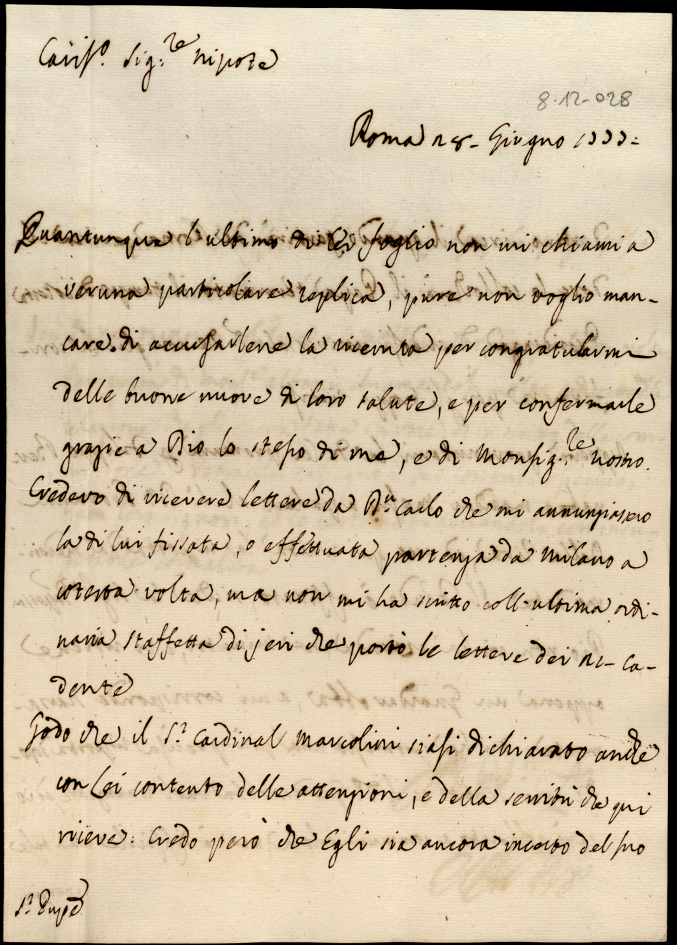 Cariss.º Sig.re Nipote
8-12-028
Roma 28- Giugno 1777=
Quantunque l'ultimo di Lei foglio non mi chiami a
veruna particolare replica, pure non voglio man-
care di accusarlene la ricevuta per congratularmi
delle buone nuove di loro salute, e per confermarle
grazie a Dio lo stesso di me, e di Monsig.re nostro.
Credevo di ricevere lettere da D.n Carlo che mi annunziassero
la di lui fissata, o effettuata partenza da Milano a
cotesta volta, ma non mi ha scritto coll'ultima ordi-
naria staffetta di jeri che portò le lettere dei 21- ca-
dente
Godo che il S.r Cardinal Marcolini siasi dichiarato anche
con Lei contento delle attenzioni, e della servitù che qui
riceve: Credo però che Egli sia ancora incerto del suo